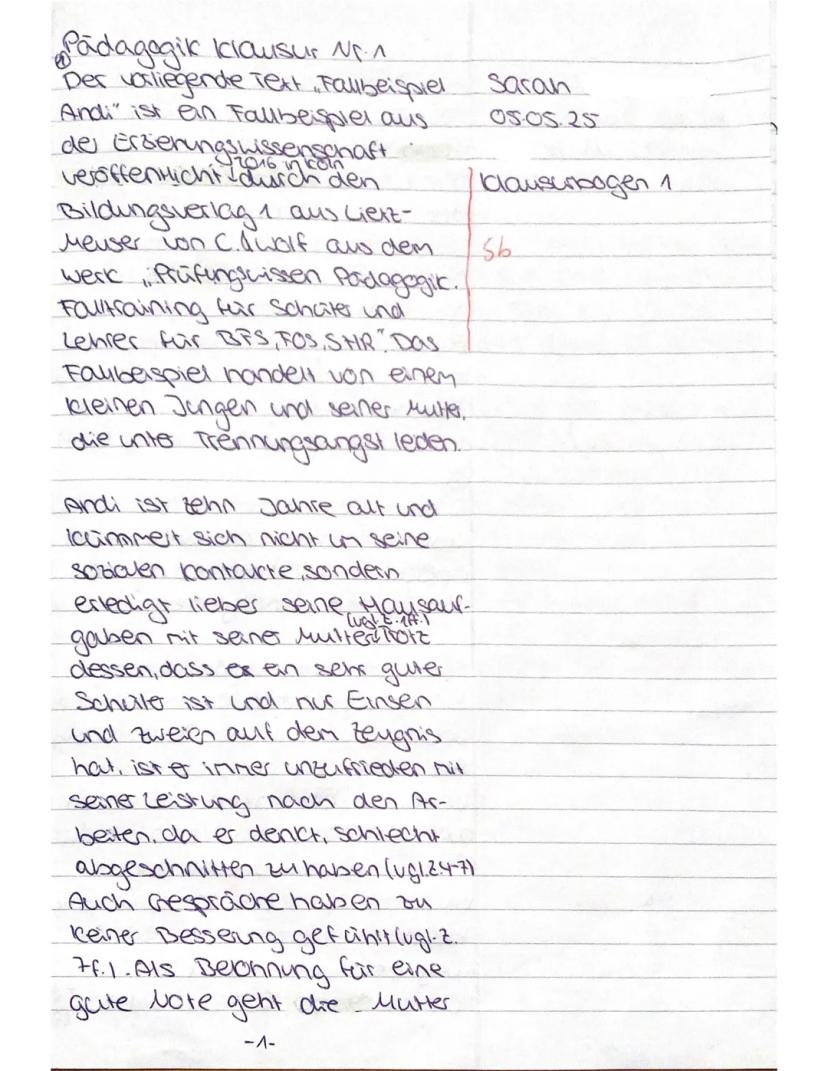 Pädagogik Klausur Nr. 1
① Der vorliegende Text „Fallbeispiel
Andi" ist ein Fallbeispiel aus
der Erzierungswissenschaft
veröffentlicht 2016 in Köln durch den
Bildungsverlag 1 aus Liert-
Meuser von C. Wolf aus dem
Werk „Prüfungswissen Pädagogik.
Falltraining für Schüler und
Lehrer für BFS, FOS, SHR". Das
Fallbeispiel handelt von einem
kleinen Jungen und seiner Mutter,
die unter Trennungsangst leden.
Andi ist zehn Jahre alt und
kümmert sich nicht um seine
sozialen Kontakte, sondern
erledigt lieber seine Hausauf-
gaben mit seiner Mutter (vgl. Z. 1ff.) Trotz
dessen, dass er ein sehr guter
Schüler ist und nur Einsen
und zweien auf dem Zeugnis
hat, ist er immer unzufrieden mit
seiner Leistung nach den Ar-
beiten, da er denkt, schlecht
abgeschnitten zu haben (vgl. Z. 4-7)
Auch Gespräche haben zu
keiner Besserung geführt (vgl. Z.
7f.). Als Belohnung für eine
gute Note geht die Mutter
-1-
Sarah
05.05.25
Klausurbogen 1
Sb